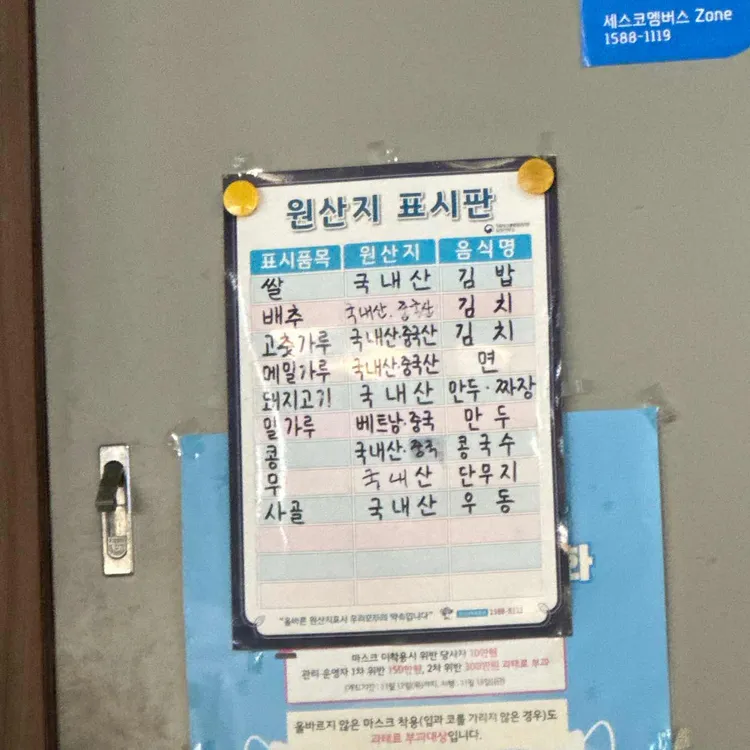 세스코멤버스 Zone
1588-1119
원산지 표시판
표시품목 원산지 음식명
쌀 국내산 김밥
배추 국내산.중국산 김치
고춧가루 국내산·중국산 김치
메밀가루 국내산·중국산 면
돼지고기 국내산 만두·짜장
밀가루 베트남·중국 만두
콩 국내산·중국 콩국수
무 국내산 단무지
사골 국내산 우동
화
"올바른 원산지표시 우리모두의 약속입니다"
마스크 미착용시 위반 당사자 10만원
관리·운영자 1차 위반 150만원, 2차 위반 300만원 과태료 부과
올바르지 않은 마스크 착용(입과 코를 가리지 않은 경우)도
과태료 부과대상입니다.